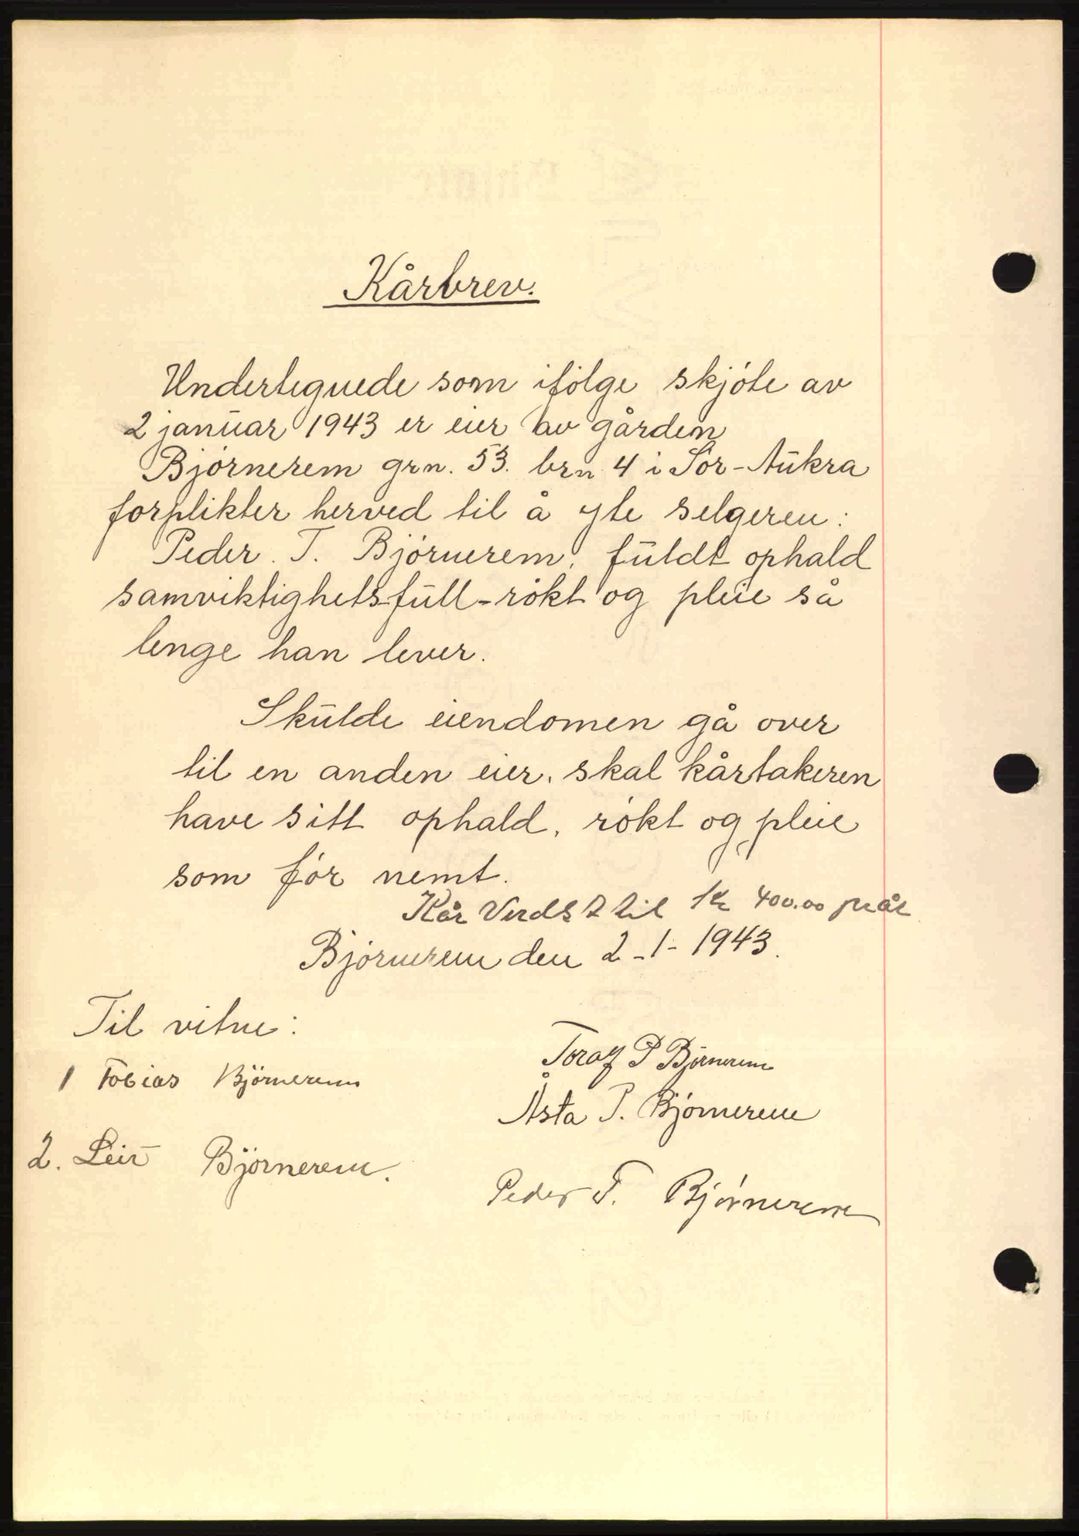 Kårbrev.
Undertegnede som ifölge skjöte av
2 januar 1943 er eier av gården
Björnerem grn. 53. brn 4 i Sör-Aukra
forplikter herved til å yte selgeren:
Peder. T. Björnerem, fuldt ophald
samviktighetsfull-rökt og pleie så
lenge han lever.
Skulde eiendomen gå over
til en anden eier, skal kårtakeren
have sitt ophald, rökt og pleie
som för nemt.
Kår Verdst til Kr 400.00 pr år
Björnerem den 2-1-1943.
Til vitne:
1 Tobias Björnerem
2. Leir Björnerem.
Toraf P Björnerem
Åsta P. Björnerem
Peder T. Björnerem